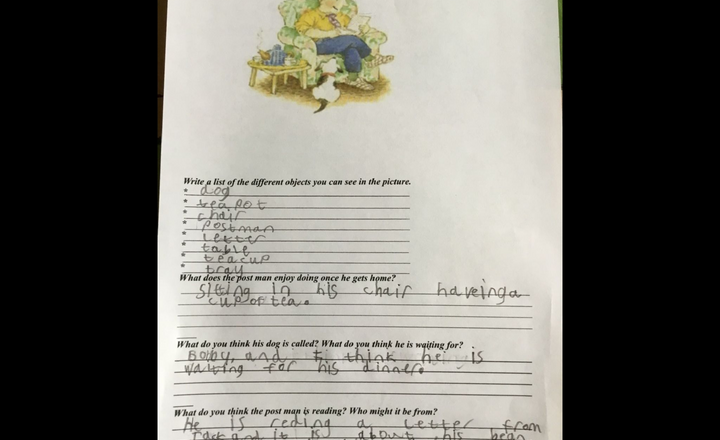 Write a list of the different objects you can see in the picture.
* dog
* teapot
* chair
* postman
* letter
* table
* teacup
* tray
What does the post man enjoy doing once he gets home?
sitting in his chair haveinga
cup of tea.
What do you think his dog is called? What do you think he is waiting for?
Bobby, and I think he is
waiting for his dinner.
What do you think the post man is reading? Who might it be from?
He is reding a letter from
and it is about his